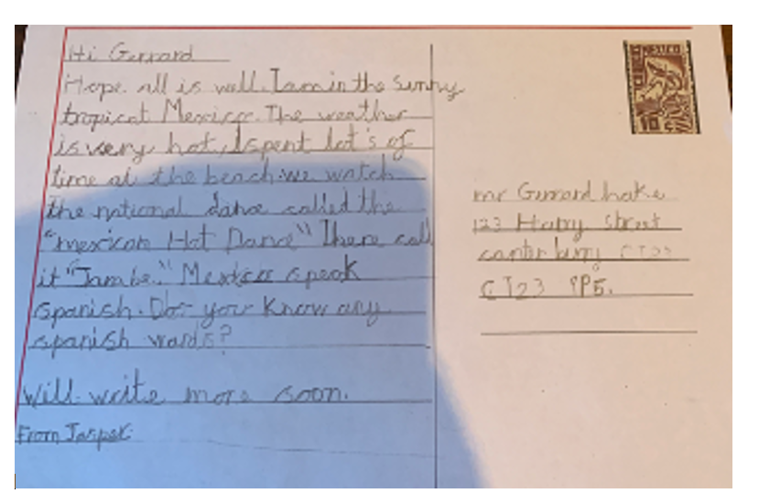 Hi Gerrard
Hope all is well. I am in the sunny
tropical Mexico. The weather
is very hot, I spent lot's of
time at the beach. we watch
the national dance called the
"mexican Hat Dance" There call
it "Jambe." Mexico speak
spanish. Do you know any
spanish words?
Will write more soon.
From Jasper.
MEXICO
mr Gerrard hake
123 Harry street
canterbury CT23
CT23 9PE.